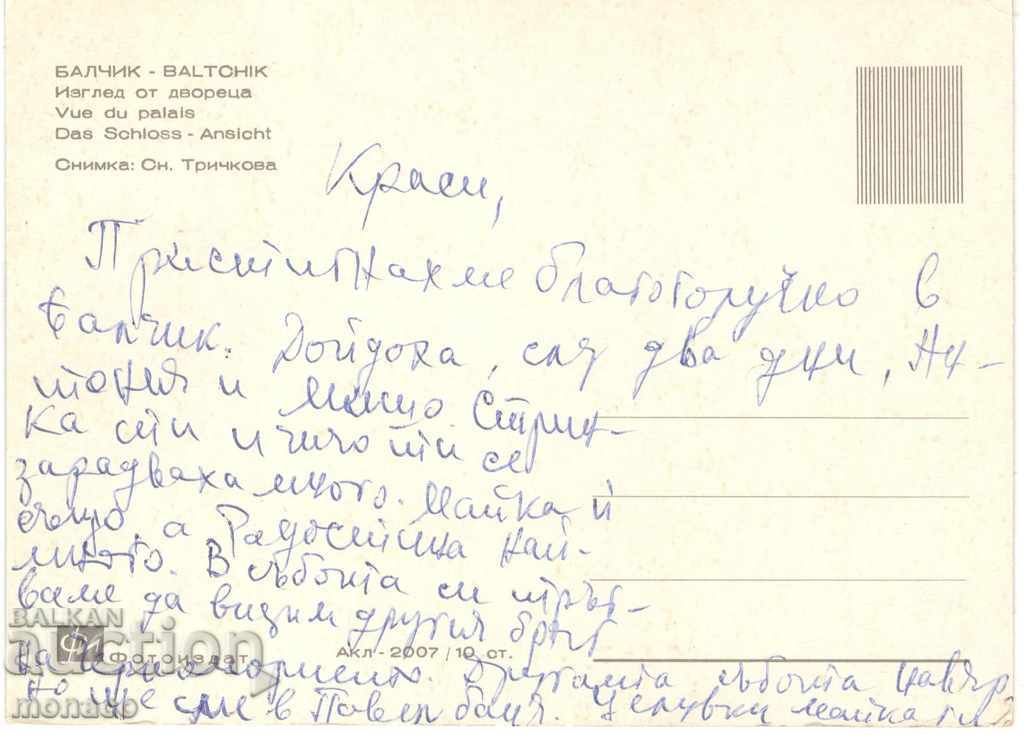 БАЛЧИК - BALTCHIK
Изглед от двореца
Vue du palais
Das Schloss - Ansicht
Снимка: Сн. Тричкова
Краси,
Пристигнахме благополучно в
Балчик. Дойдоха, сл. два дни, Ан-
тония и Минчо. Стрин-
ка ти и чичо ти се
зарадваха много. Майка й
също, а Радостина най-
много. В събота си тръг-
ваме да видим другия бряг
на Черноморието. Другата събота навяр
но ще сме в Павел баня. Целувки майка ти
BALKAN
auction
monaco
Фотоиздат
Акл-2007/10 ст.